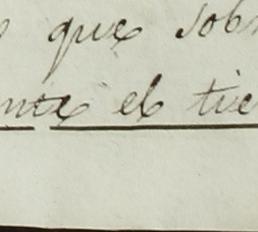 que sob
nte el tie